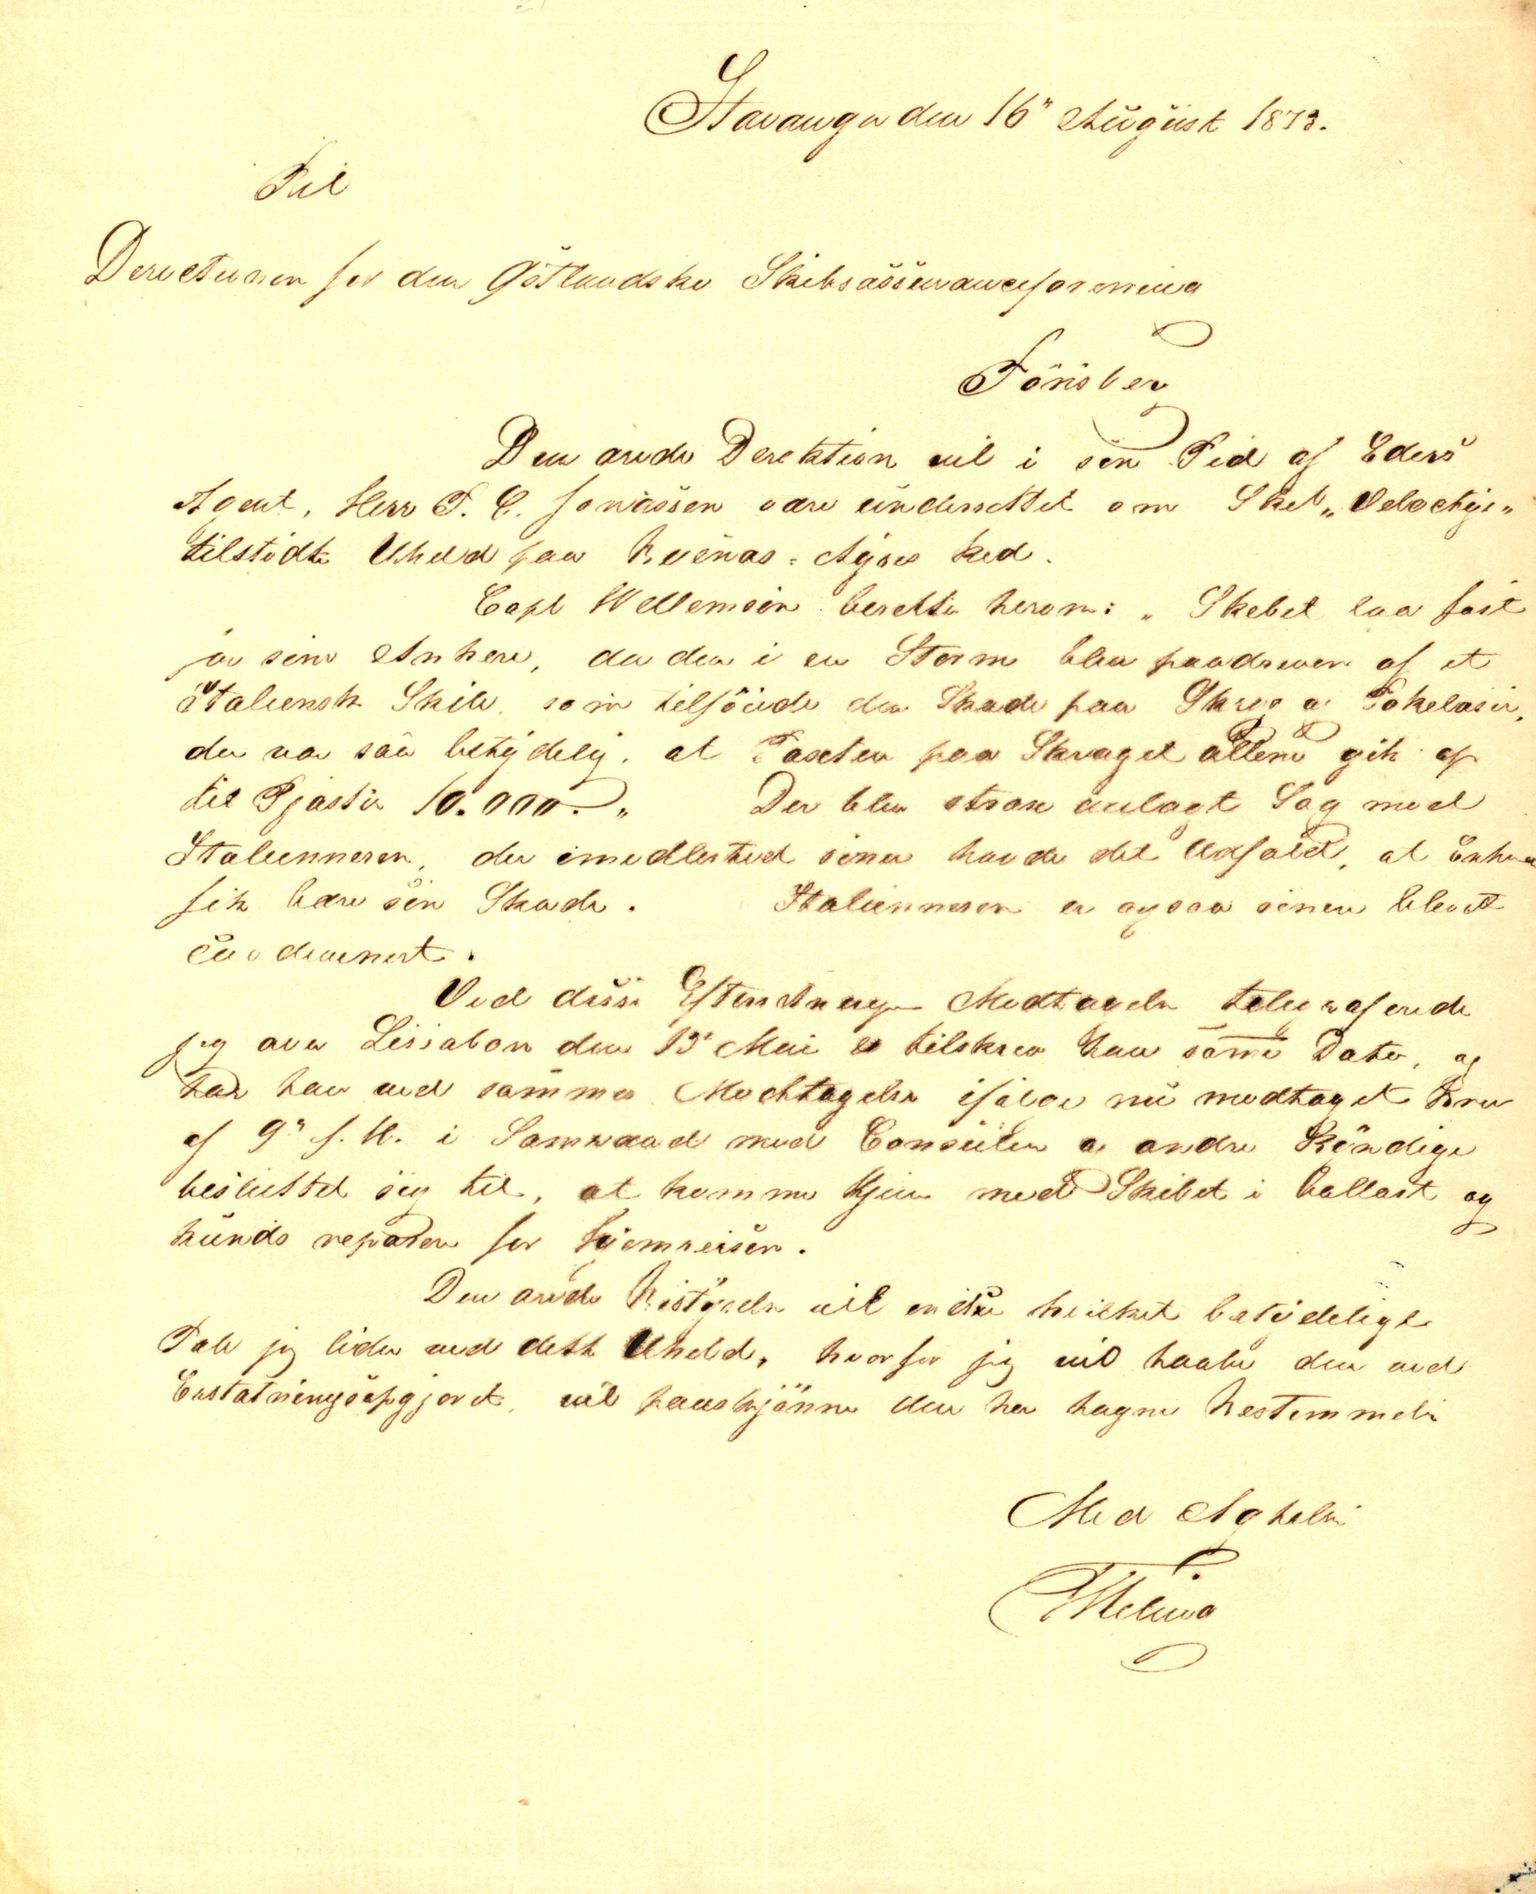 Stavanger den 16" August 1873.
Til
Directionen for den Östlandske Skibsassuranceforening
Tönsberg
Den ærede Direktion vil i sin Tid af Eders
Agent, Herr T. C. Jonassen være underrettet om Skib „Velochje"
tilstödte Uheld paa Buenos-Ayres Red.
Capt Wellemsen beretter herom: „Skibet laa fast
for sine Ankere, da den i en Storm blev paadreven af et
Italiensk Skib, som tilföiede den Skade paa Skrog og Takelasie,
der var saa betydelig, at Taxten paa Skroget allene gik op
til Pjaster 10.000." Der blev strax anlagt Sag mod
Italienneren, der imidlertid siner havde det Udfald, at Enhver
fik bære sin Skade. Italienneren er ogsaa senere blevet
condemnert.
Ved disse Efterretningers Modtagelse telegraferede
jeg over Lissabon den 13' Mai & tilskrev ham samme Dato, og
har han ved sammes Modtagelse ifølge nu modtaget Brev
af 9" f. M. i Samraad med Consulen og andre Kyndige
besluttet sig til, at komme hjem med Skibet i Ballast og
kunds reparere for Hjemreisen.
Den ærede Bestyrelse vil indse hvilket betydeligt
Tab jeg lider ved dette Uheld, hvorfor jeg vil haabe den ved
Erstatningsopgjöret, vil paaskjönne den her tagne Bestemmelse
Med Agtelse